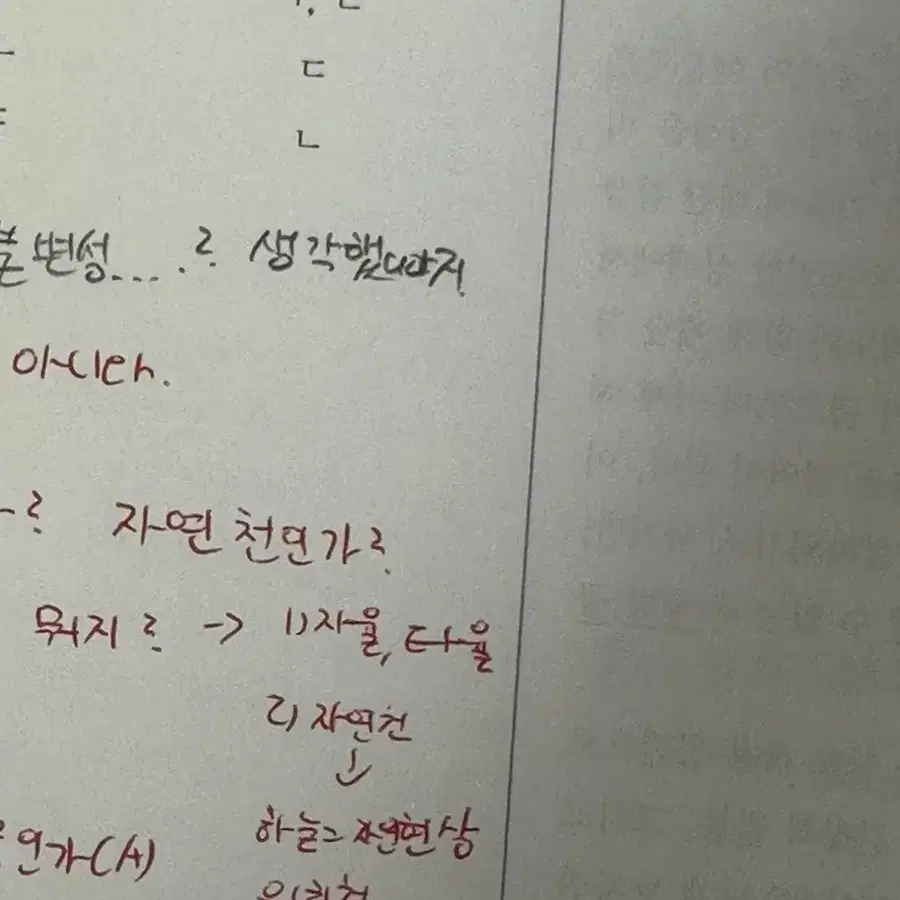 ㄷ
ㄴ
불변성.....? 생각했다마지
아니다.
? 자연천인가?
뭐지? -> 1) 자율, 타율
2) 자연천
↓
인가(A) 하늘= 자연현상